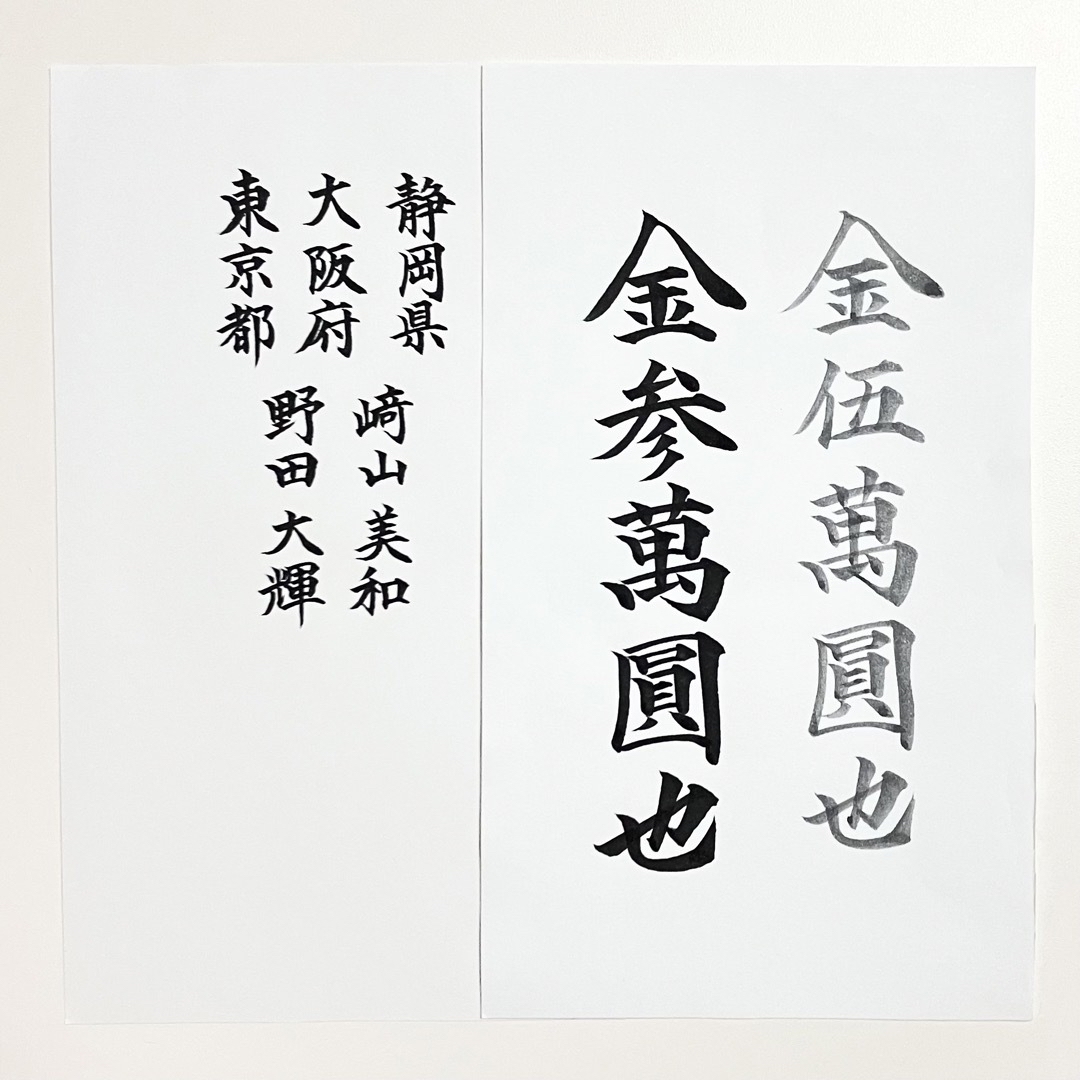 金伍萬圓也
金参萬圓也
静岡県
﨑山美和
大阪府
野田大輝
東京都